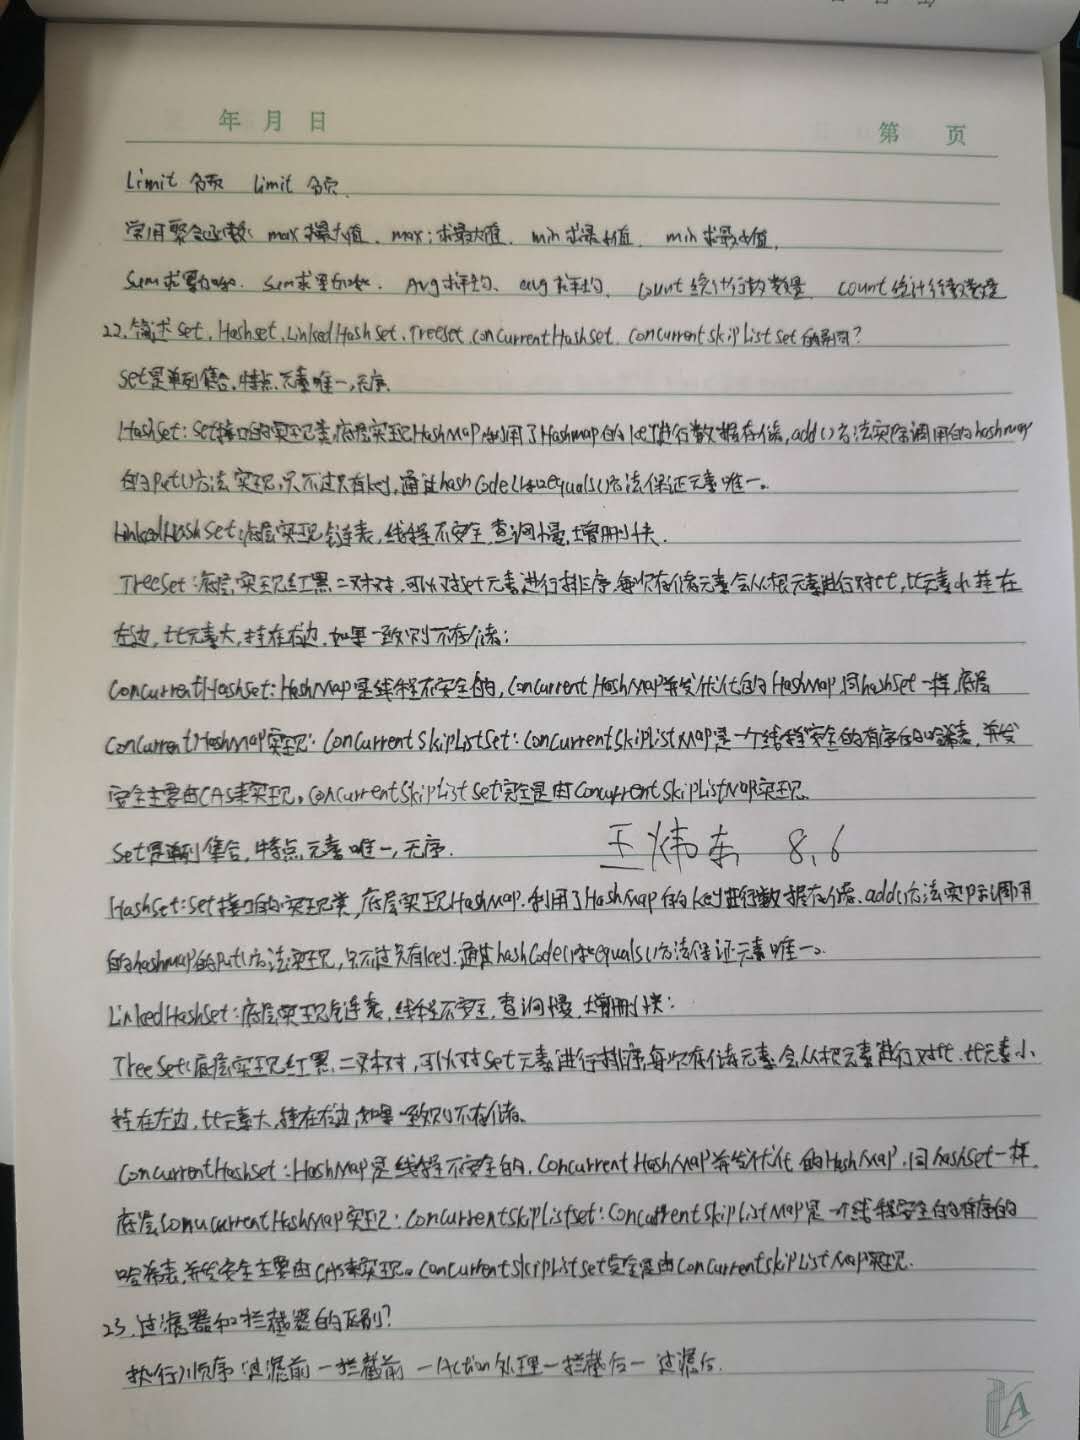 年 月 日
第 页
Limit 分页 limit 分页
常用聚合函数: max 求最大值、max: 求最大值、min 求最小值、min 求最小值,
Sum求累加和、sum求累加和、Avg求平均、avg求平均、count统计行数数量、count统计行数数量
22.简述set,Hashset,LinkedHashset,Treeset,ConcurrentHashset,ConcurrentSkipListset的期间?
set是单列集合,特点,元素唯一,无序.
HashSet:set接口的实现类,底层实现HashMap,利用了Hashmap的key进行数据存储,add()方法实际调用的hashmap
的put()方法实现,只不过只有key,通过hashCode()和equals()方法保证元素唯一。
LinkedHashSet:底层实现链表,线程不安全,查询慢,增删快.
TreeSet:底层实现红黑二叉树,可以对set元素进行排序,每次存储元素会从根元素进行对比,比元素小挂在
左边,比元素大,挂在右边,如果一致则不存储;
ConcurrentHashset:HashMap是线程不安全的,ConcurrentHashMap并发优化的HashMap,同hashset一样,底层
ConcurrentHashMap实现:ConcurrentSkipListSet:ConcurrentSkipListMap是一个线程安全的有序的哈希表,并发
安全主要由CAS来实现。ConcurrentSkipListSet完全是由ConcurrentSkipListMap实现.
Set是单列集合,特点,元素唯一,无序. 王炜东 8.6
HashSet:set接口的实现类,底层实现HashMap.利用了HashMap的key进行数据存储.add()方法实际调用
的hashmap的put()方法实现,只不过只有key.通过hashCode()和equals()方法保证元素唯一。
LinkedHashSet:底层实现链表,线程不安全,查询慢,增删快:
TreeSet:底层实现红黑二叉树,可以对set元素进行排序,每次存储元素会从根元素进行对比.比元素小
挂在左边,比元素大,挂在右边,如果一致则不存储。
ConcurrentHashset:HashMap是线程不安全的,ConcurrentHashMap并发优化的HashMap,同hashset一样.
底层ConucurrentHashMap实现:Concurrentskiplistset:ConcurrentSkipListMap是一个线程安全的有序的
哈希表,并发安全主要由CAS来实现。ConcurrentSkipListset完全是由ConcurrentSkipListMap实现.
23.过滤器和拦截器的区别?
执行顺序:过滤前—拦截前—Action处理—拦截后—过滤后.
A